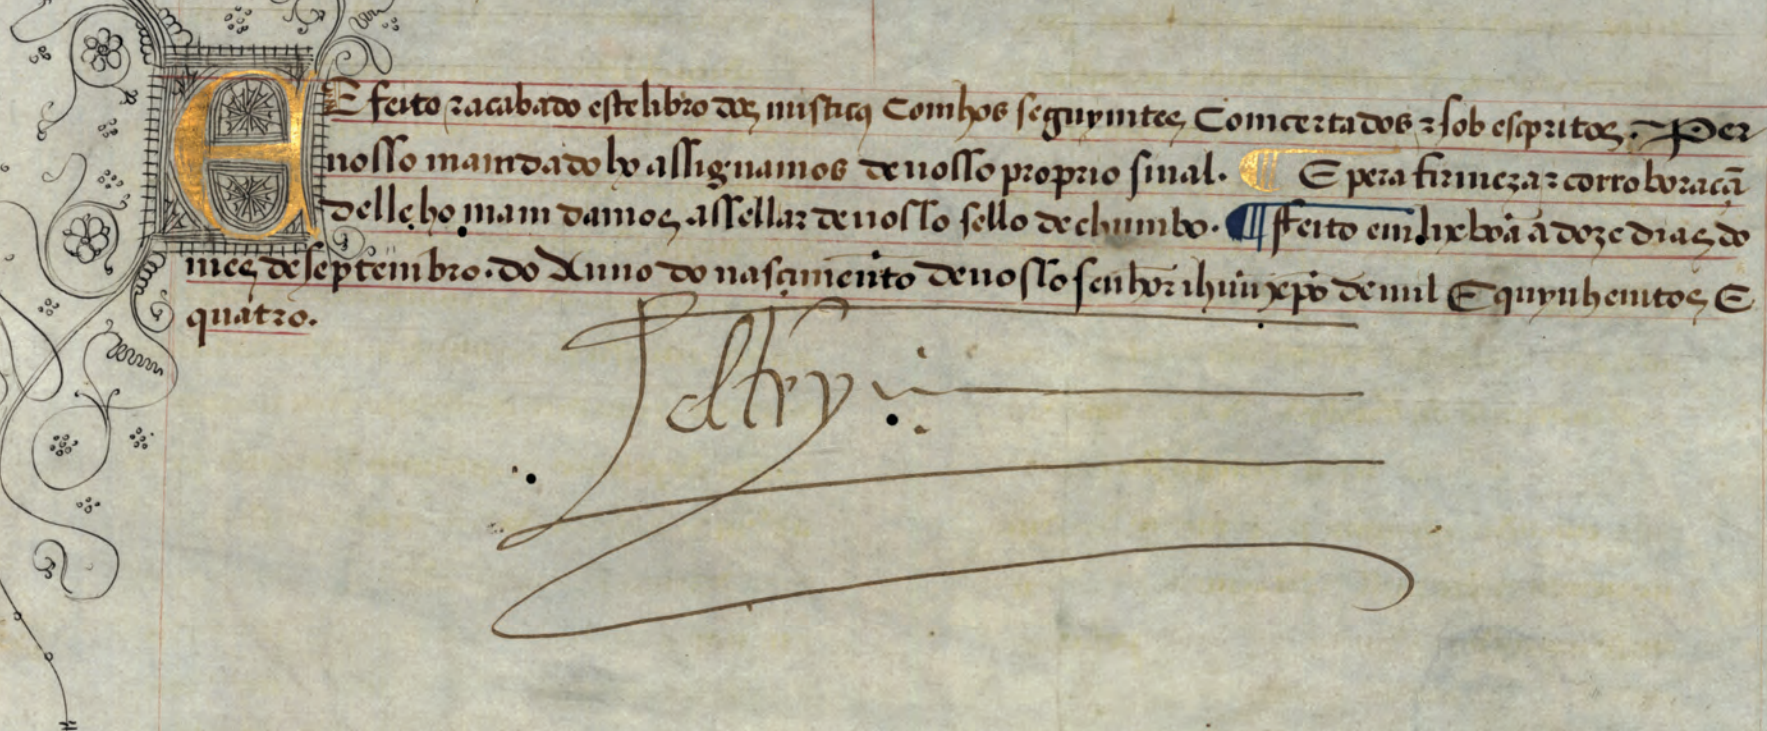 E E feito ⁊ acabado este libro dos misticos Com hos seguyntes Concertados ⁊ sob escpritos. Per
nosso mandado ho assignamos de nosso proprio sinal. ¶ E pera firmeza ⁊ corroboraçã
delle ho mandamos assellar de nosso sello de chumbo. ¶ Feito em lixboã ã doze dias do
mes de septembro. do Anno do nasçimento de nosso senhor ihũu xp̃o de mil E quynhentos E
quatro.